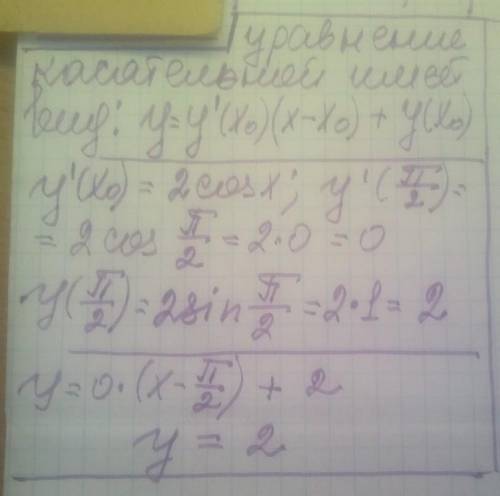 уравнение
касательной имеет
вид: y=y'(x₀)(x-x₀)+y(x₀)
y'(x₀)=2cosx; y'(π/2)=
=2cos π/2=2·0=0
y(π/2)=2sin π/2=2·1=2
y=0·(x-π/2)+2
y=2